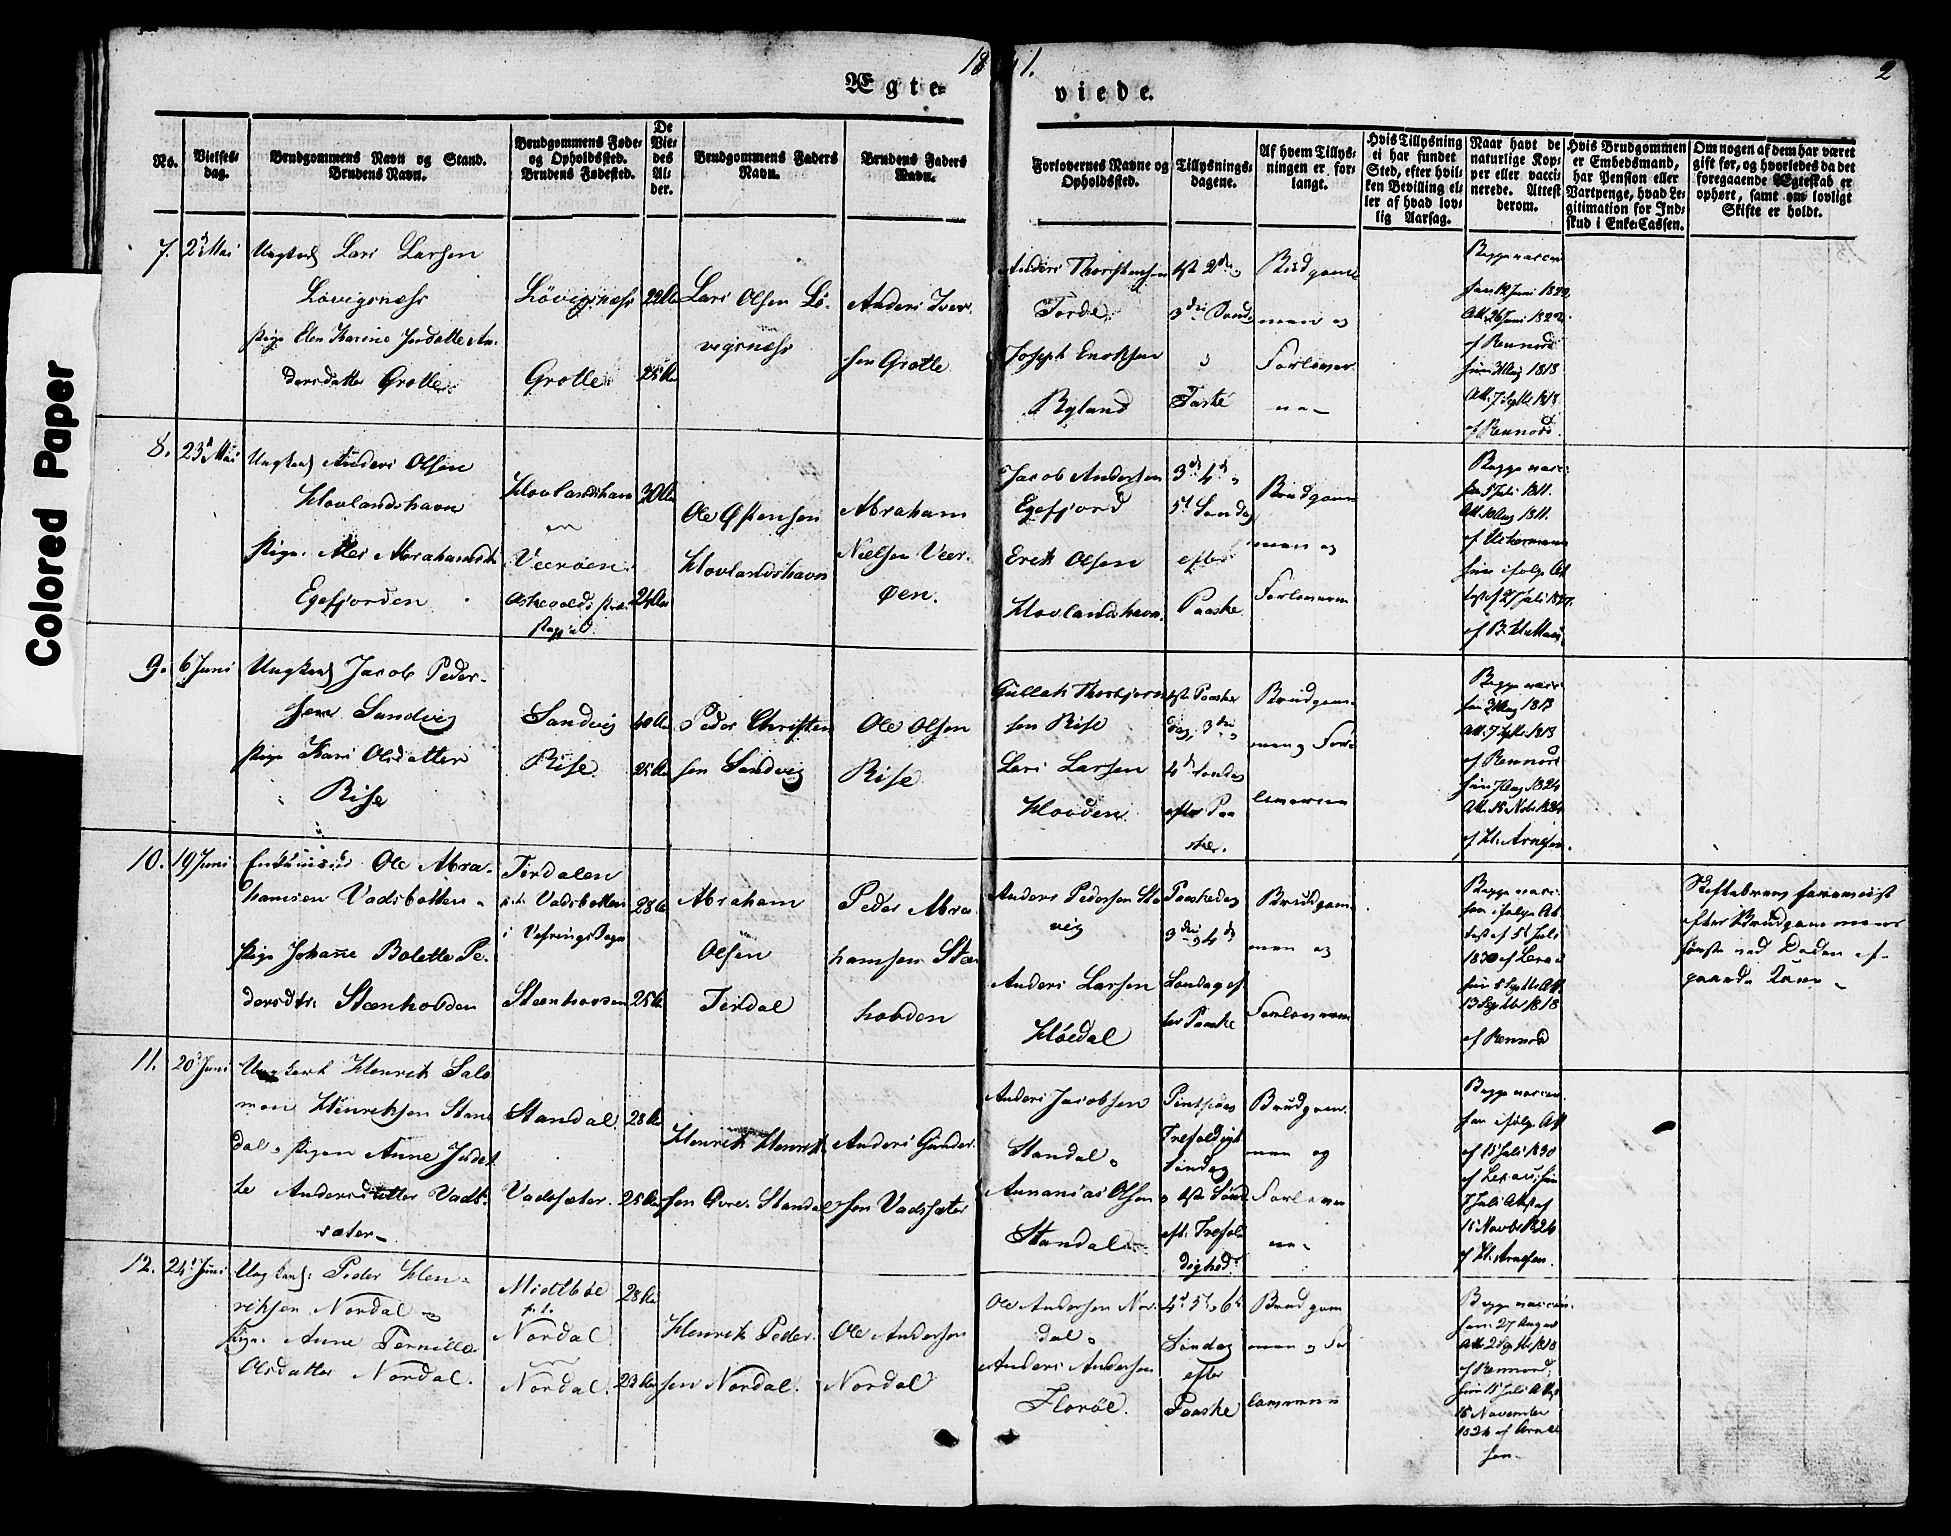 Colored Paper
1841.
2
Ægteviede.
No.
Vielsesdag.
Brudgommens Navn og Stand.
Brudens Navn.
Brudgommens Føde-
og Opholdssted.
Brudens Fødested.
De
Vie-
des
Al-
der.
Brudgommens Faders
Navn.
Brudens Faders
Navn.
Forlovernes Navne og
Opholdssted.
Tillysnings-
dagene.
Af hvem Tillys-
ningen er for-
langt.
Hvis Tillysning
ei har fundet
Sted, efter hvil-
ken Bevilling el-
ler af hvad lov-
lig Aarsag.
Naar havt de
naturlige Kop-
per eller vacci-
nerede. Attest
derom.
Hvis Brudgommen
er Embedsmand,
har Pension eller
Vartpenge, hvad Le-
gitimation for Ind-
skud i Enke-Cassen.
Om nogen af dem har været
gift før, og hvorledes da det
foregaaende Ægteskab er
ophørt, samt om lovligt
Skifte er holdt.
7.
2 Mai
Ungkarl Lars Larsen
Løvigsnæss
Pige Elen Karine An-
dersdatter Grotle
Løvigsnæss
Grotle
22 Aar
25 Aar
Lars Olsen Lø-
vigsnæss
Anders Iver-
sen Grotle
Anders Thorstensen
Torde
Joseph Enoksen
Ryland
1ste 2den
3die Sønd.
Faste
Brudgom-
men og
Forlover-
ne
Begge vaccn.
12 Juni 1822
Att. 26 Juni 1822
af Rennord
1813
Att. 7 Septbr 1813
af Rennord.
8.
23 Mai
Ungkarl Anders Olsen
Hovlandshavn
Pige Abrahamsdtr
Egefjorden
Hovlandshavn
Veerøen
Askevolds Præ-
stegjeld.
30 Aar
24 Aar
Ole Østensen
Hovlandshavn
Abraham
Nielsen Veer-
øen.
Jacob Andersen
Egefjord
Erik Olsen
Hovlandshavn.
3die 4de
5te Søndag
efter
Paaske
Brudgom
men og
Forloverne
Begge vacc.
5 Juli 1811.
Att. 1811.
ifølge At-
test af 27 Juli
9.
6 Juni
Ungkarl Jacob Peder-
sen Sandvig
Pige Kari Olsdatter
Rise
Sandvig
Rise
40 Aar
25 Aar
Peder Christen
sen Sandvig
Ole Olsen
Rise
Gullak Thorbjørn
sen Rise
Lars Larsen
Hovden
1ste Paaske
dag, 3die
4de Søndag
efter Paa
ske.
Brudgom-
men og For-
loverne
Begge vacc.
1813
Att. 7 Septbr 1813
af Rennord
1824
Att. 15 Novbr 1824
af H. Arnesen.
10.
19 Juni
Enkemand Ole Abra-
hamsen Vadsbotten
Pige Johanne Bolette Pe-
dersdtr. Steenhovden
Tirdalen
p.t. Vadsbotten
i Vefrings Sogn
Steenhovden
28 Aar
25 Aar
Abraham
Olsen
Tirdal
Peder Abra
hamsen Steen
hovden
Anders Pedersen Sta
vig
Anders Larsen
Høidal
Paaskedag
3die 4de
Søndag ef
ter Paaske
Brudgom
men og
Forloverne
Begge vacc.
ifølge At
test af 5 Juli
1830
5 Septbr Att.
13 Septbr 1818
af Rennord
efter Brudgommens
første ved Døden af-
gaaede Kone
11.
20 Juni
Ungkarl Henrik Salo
mon Henriksen Stan
dal, Pigen Anne Judit
te Andersdatter Vads-
sæter
Standal
Vadssæter
28 Aar
25 Aar
Henrik Henrik
sen Øvre Standal
Anders Gunder
sen Vadssæter
Anders Jacobsen
Standal
Annanias Olsen
Standal
Pintsedag
Trefoldigh
Søndag
1ste Sønd
eft. Trefol
dighed
Brudgom
men og
Forlover
ne
Begge vaccn.
ifølge Att
af 15 Juli 1830
7 Juli Att. af
15 Novbr 1824
af H. Arnesen.
12.
24 Juni
Ungkarl Peder Hen-
riksen Nordal og
Pige Anne Pernille
Olsdatter Nordal.
Midtbøe
p.t.
Nordal
Nordal.
28 Aar
23 Aar
Henrik Peder-
sen Nordal.
Ole Andersen
Nordal
Ole Andersen Nor-
dal
Anders Andersen
Florøe.
4de 5te 6te
Søndag
efter
Paaske
Brudgom
men og For
loverne
Begge vaccn.
27 August
Att. 2 Septbr 1818
af Rennord,
15 Juli Att.
15 November
1824 af Arne
sen